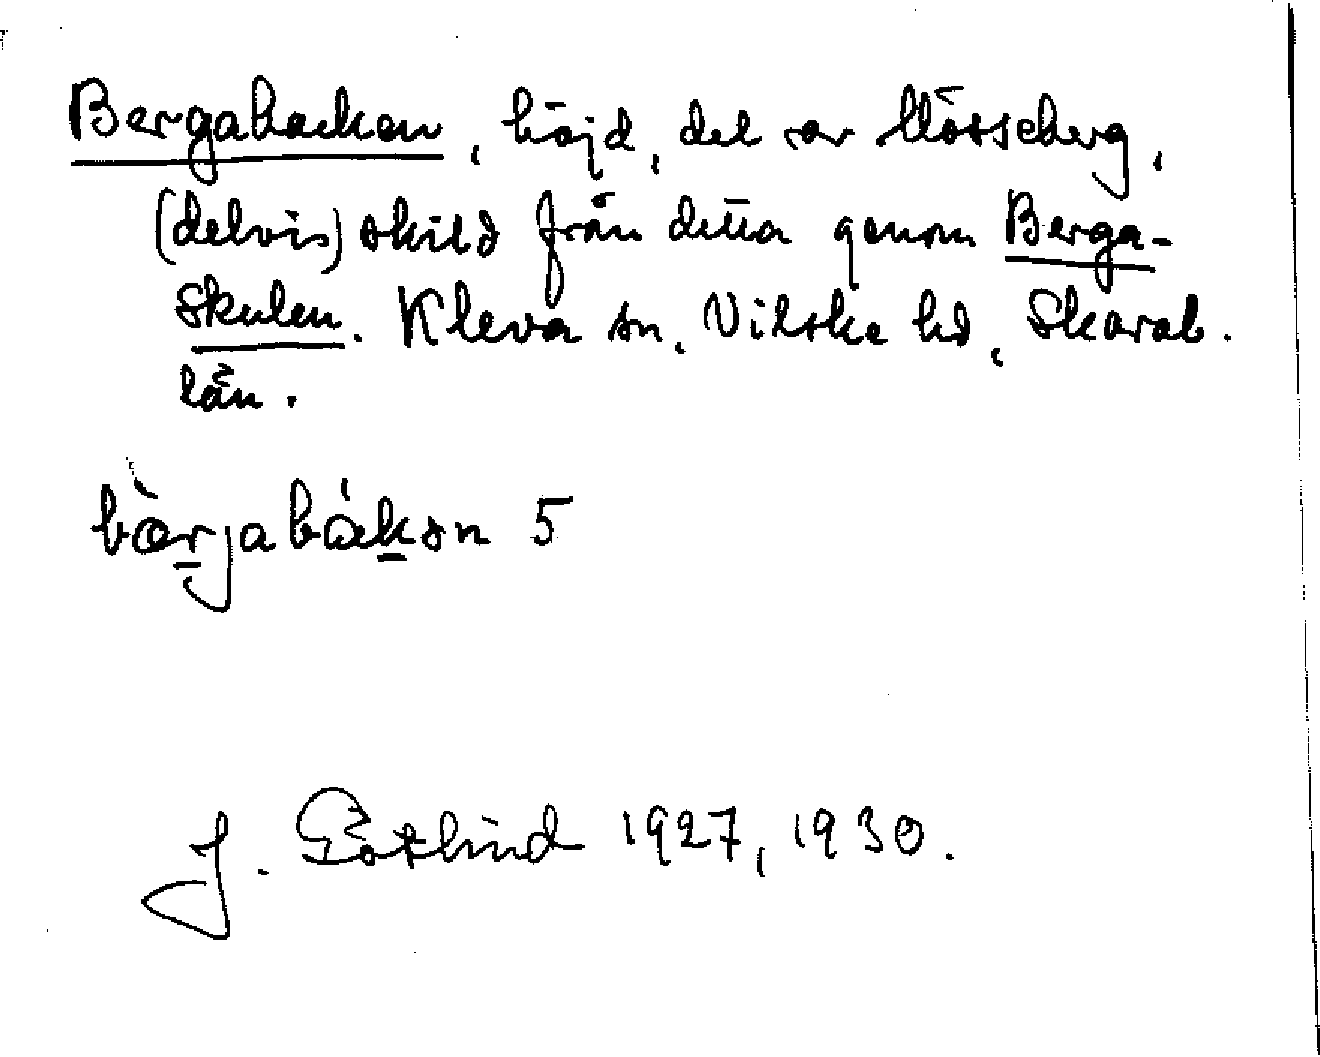 Bergabacken, höjd, del av Mösseberg,
(delvis) skild från detta genom Berga-
skulen. Kleva sn, Vilske hd, Skarab.
län.
bæ̀rjabákən 5
J. Götlind 1927, 1930.